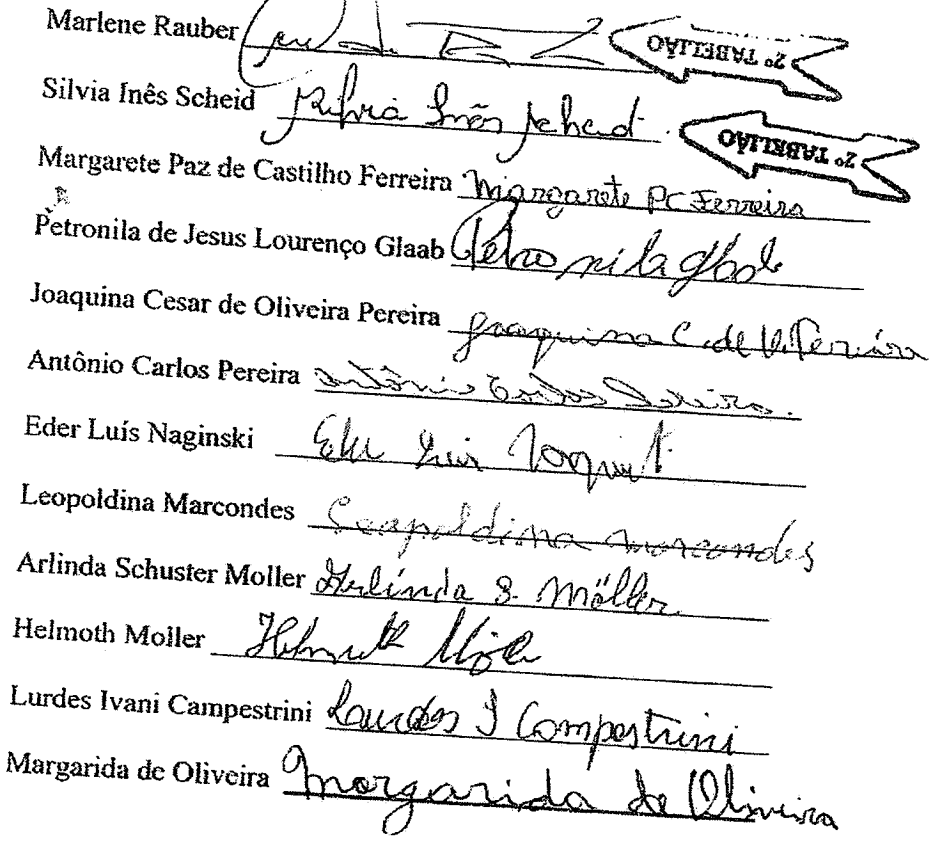 Marlene Rauber 2º TABELIÃO
Silvia Inês Scheid Silvia Inês Scheid 2º TABELIÃO
Margarete Paz de Castilho Ferreira Margarete PC Ferreira
Petronila de Jesus Lourenço Glaab Petronila Glaab
Joaquina Cesar de Oliveira Pereira Joaquina C. de O. Pereira
Antônio Carlos Pereira Antônio Carlos Pereira.
Eder Luís Naginski Eder Luis
Leopoldina Marcondes Leopoldina Marcondes
Arlinda Schuster Moller Herlinda S. Möller
Helmoth Moller Helmuth
Lurdes Ivani Campestrini Lourdes I Campestrini
Margarida de Oliveira Margarida de Oliveira